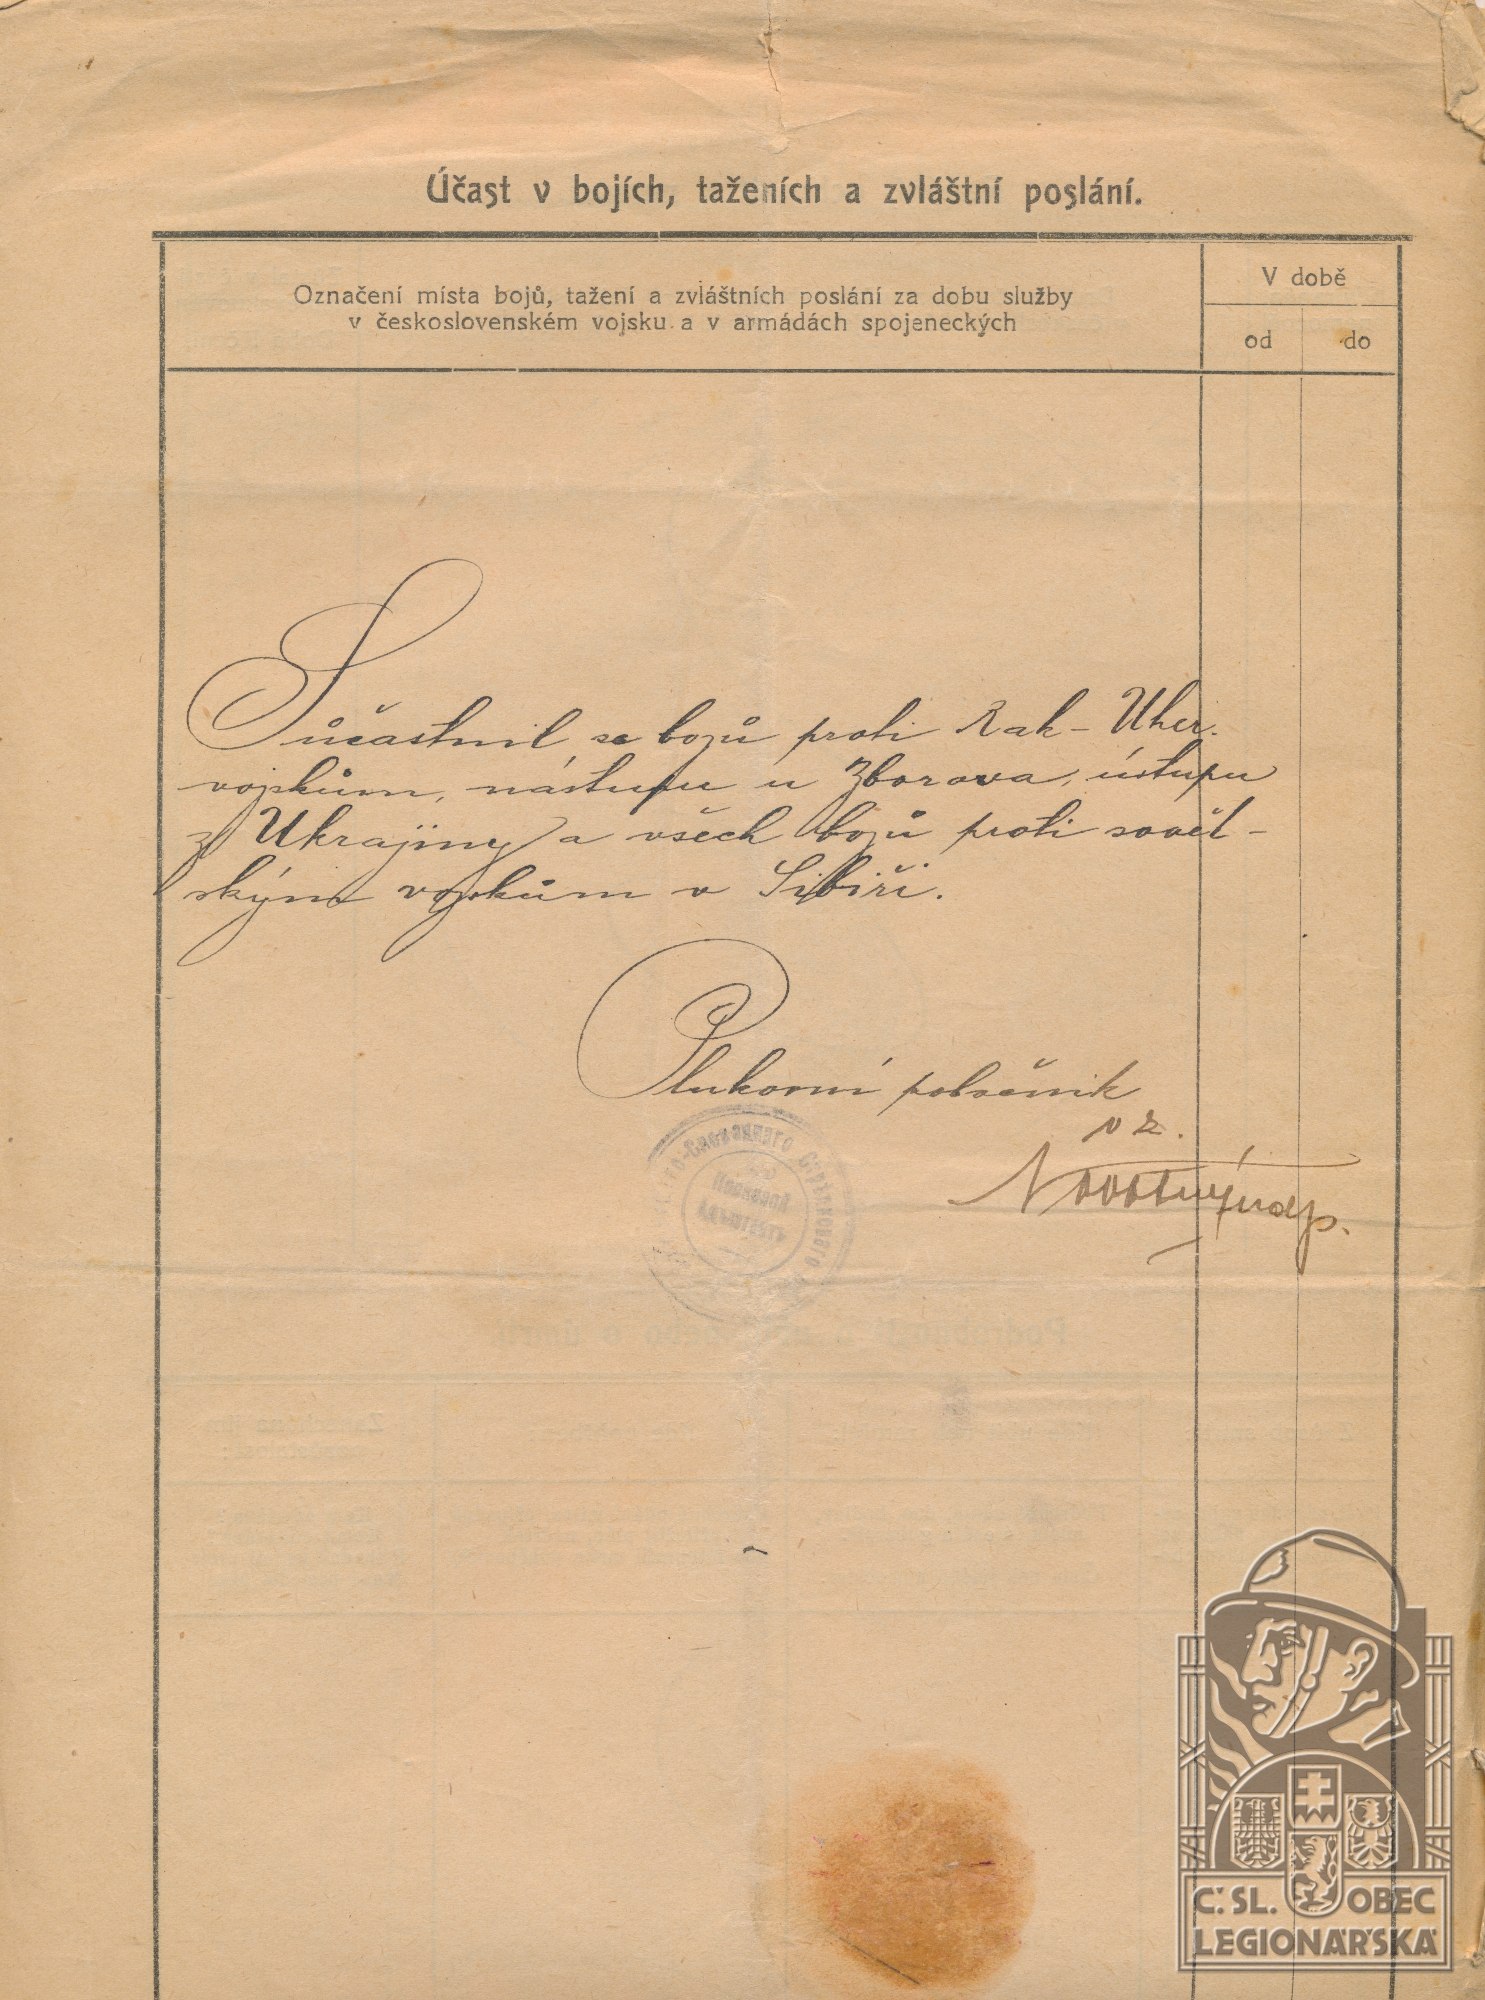 Účast v bojích, taženích a zvláštní poslání.
Označení místa bojů, tažení a zvláštních poslání za dobu služby
v československém vojsku a v armádách spojeneckých
V době
od do
Súčastnil se bojů proti Rak-Uher.
vojskům, nástupu u Zborova, ústupu
z Ukrajiny a všech bojů proti sovět-
ským vojskům v Sibiři.
Plukovní pobočník
v z.
Novotný
Č. SL. OBEC
LEGIONÁŘSKÁ